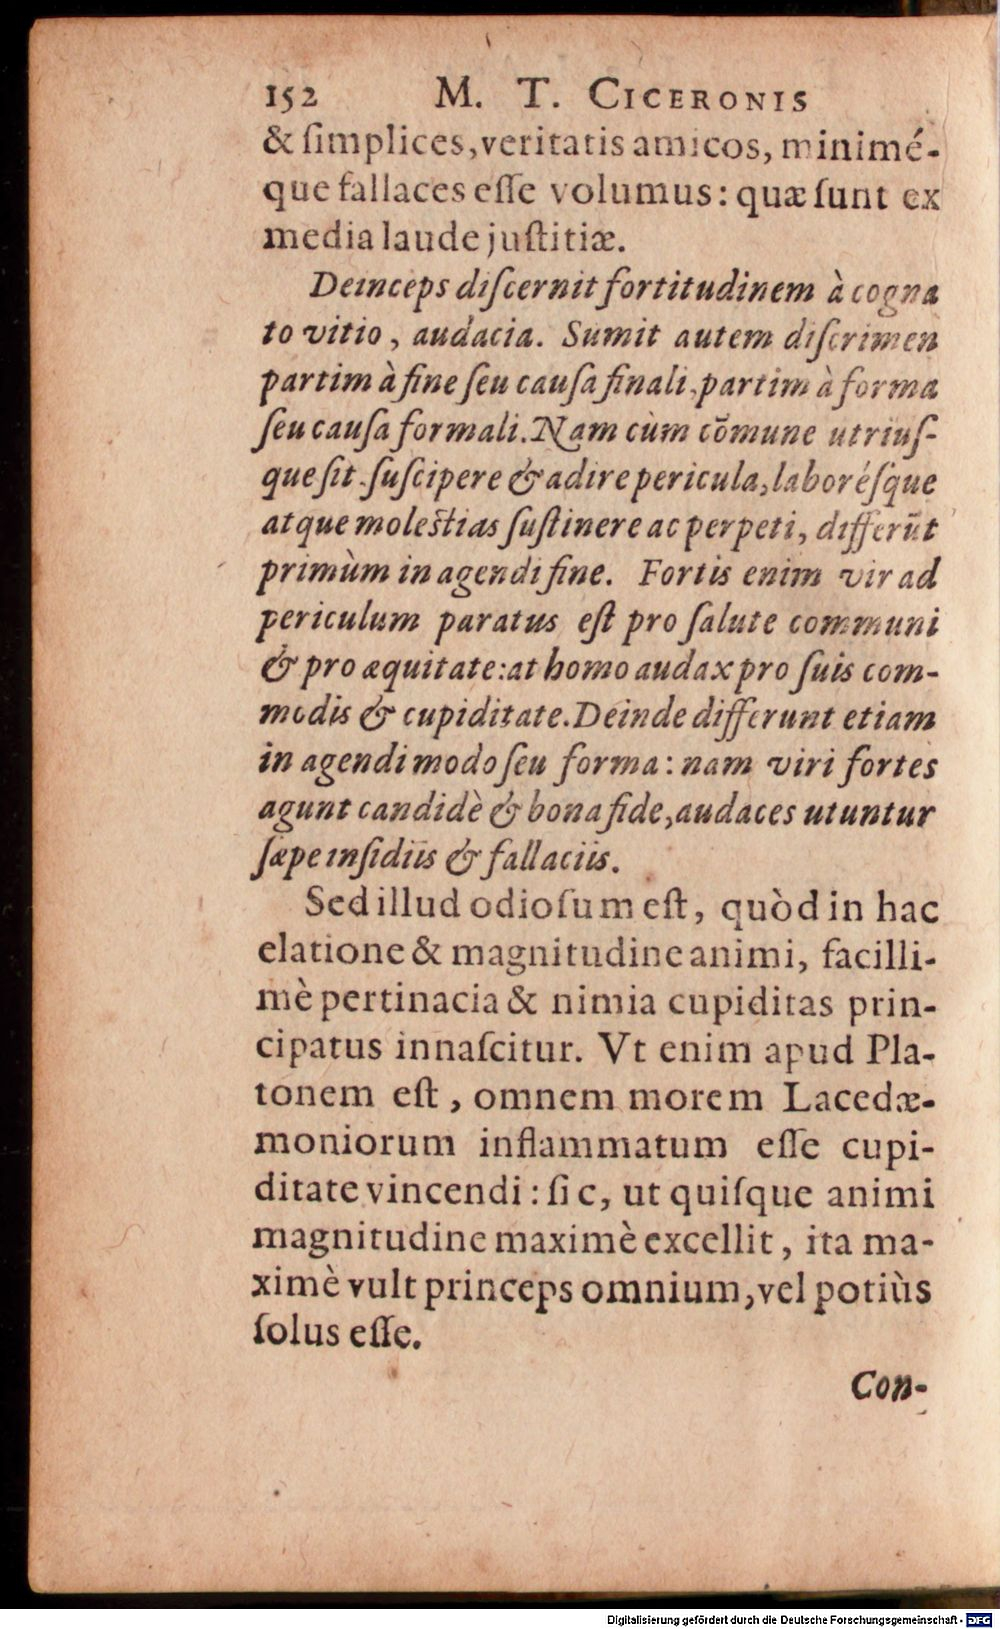 152 M. T. CICERONIS
& ſimplices, veritatis amicos, minimé-
que fallaces eſſe volumus: quæ ſunt ex
media laude juſtitiæ.
Deinceps diſcernit fortitudinem à cogna
to vitio, audacia. Sumit autem diſcrimen
partim à fine ſeu cauſa finali, partim à forma
ſeu cauſa formali. Nam cùm cōmune utriuſ-
que ſit ſuſcipere & adire pericula, laboréſque
atque moleſtias ſuſtinere ac perpeti, differūt
primùm in agendi fine. Fortis enim vir ad
periculum paratus eſt pro ſalute communi
& pro æquitate: at homo audax pro ſuis com-
modis & cupiditate. Deinde differunt etiam
in agendi modo ſeu forma: nam viri fortes
agunt candidè & bona fide, audaces utuntur
ſæpe inſidiis & fallaciis.
Sed illud odioſum eſt, quòd in hac
elatione & magnitudine animi, facilli-
mè pertinacia & nimia cupiditas prin-
cipatus innaſcitur. Vt enim apud Pla-
tonem eſt, omnem morem Lacedæ-
moniorum inflammatum eſſe cupi-
ditate vincendi: ſic, ut quiſque animi
magnitudine maximè excellit, ita ma-
ximè vult princeps omnium, vel potiùs
ſolus eſſe.
Con-
Digitalisierung gefördert durch die Deutsche Forschungsgemeinschaft - DFG